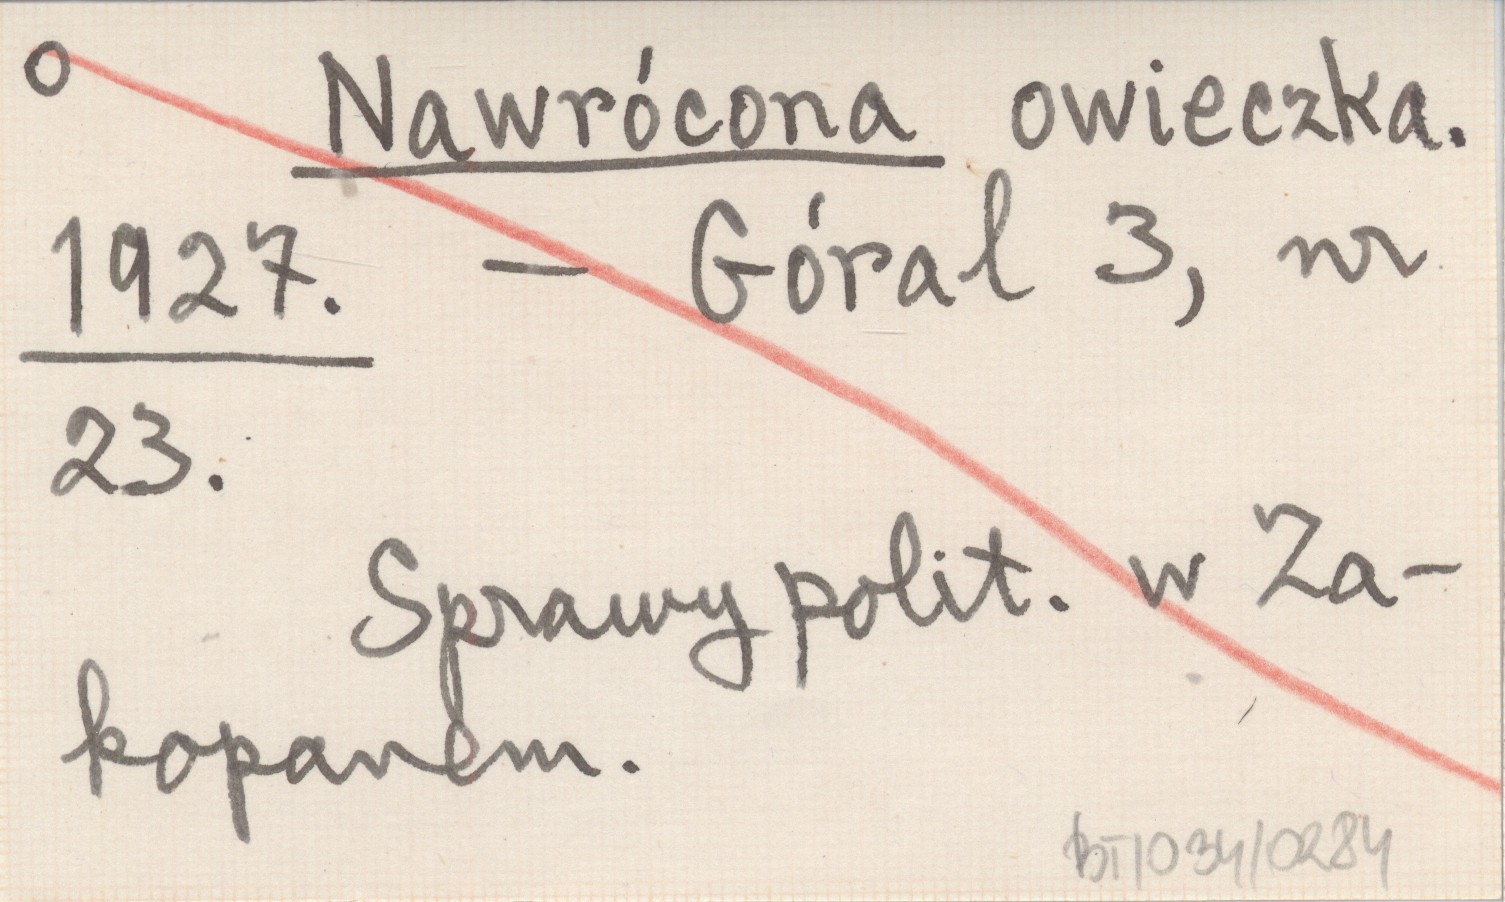 o Nawrócona owieczka.
1927. – Góral 3, nr
23.
Sprawy polit. w Za-
kopanem.
BT/034/0284